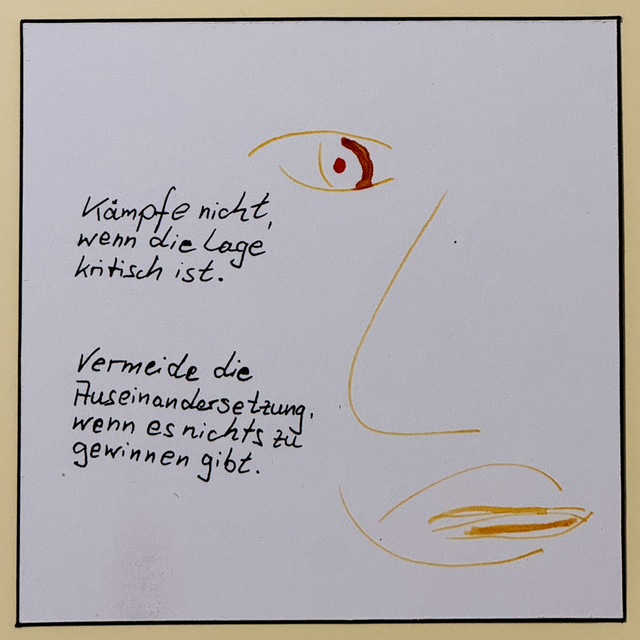 Kämpfe nicht,
wenn die Lage
kritisch ist.
Vermeide die
Auseinandersetzung,
wenn es nichts zu
gewinnen gibt.